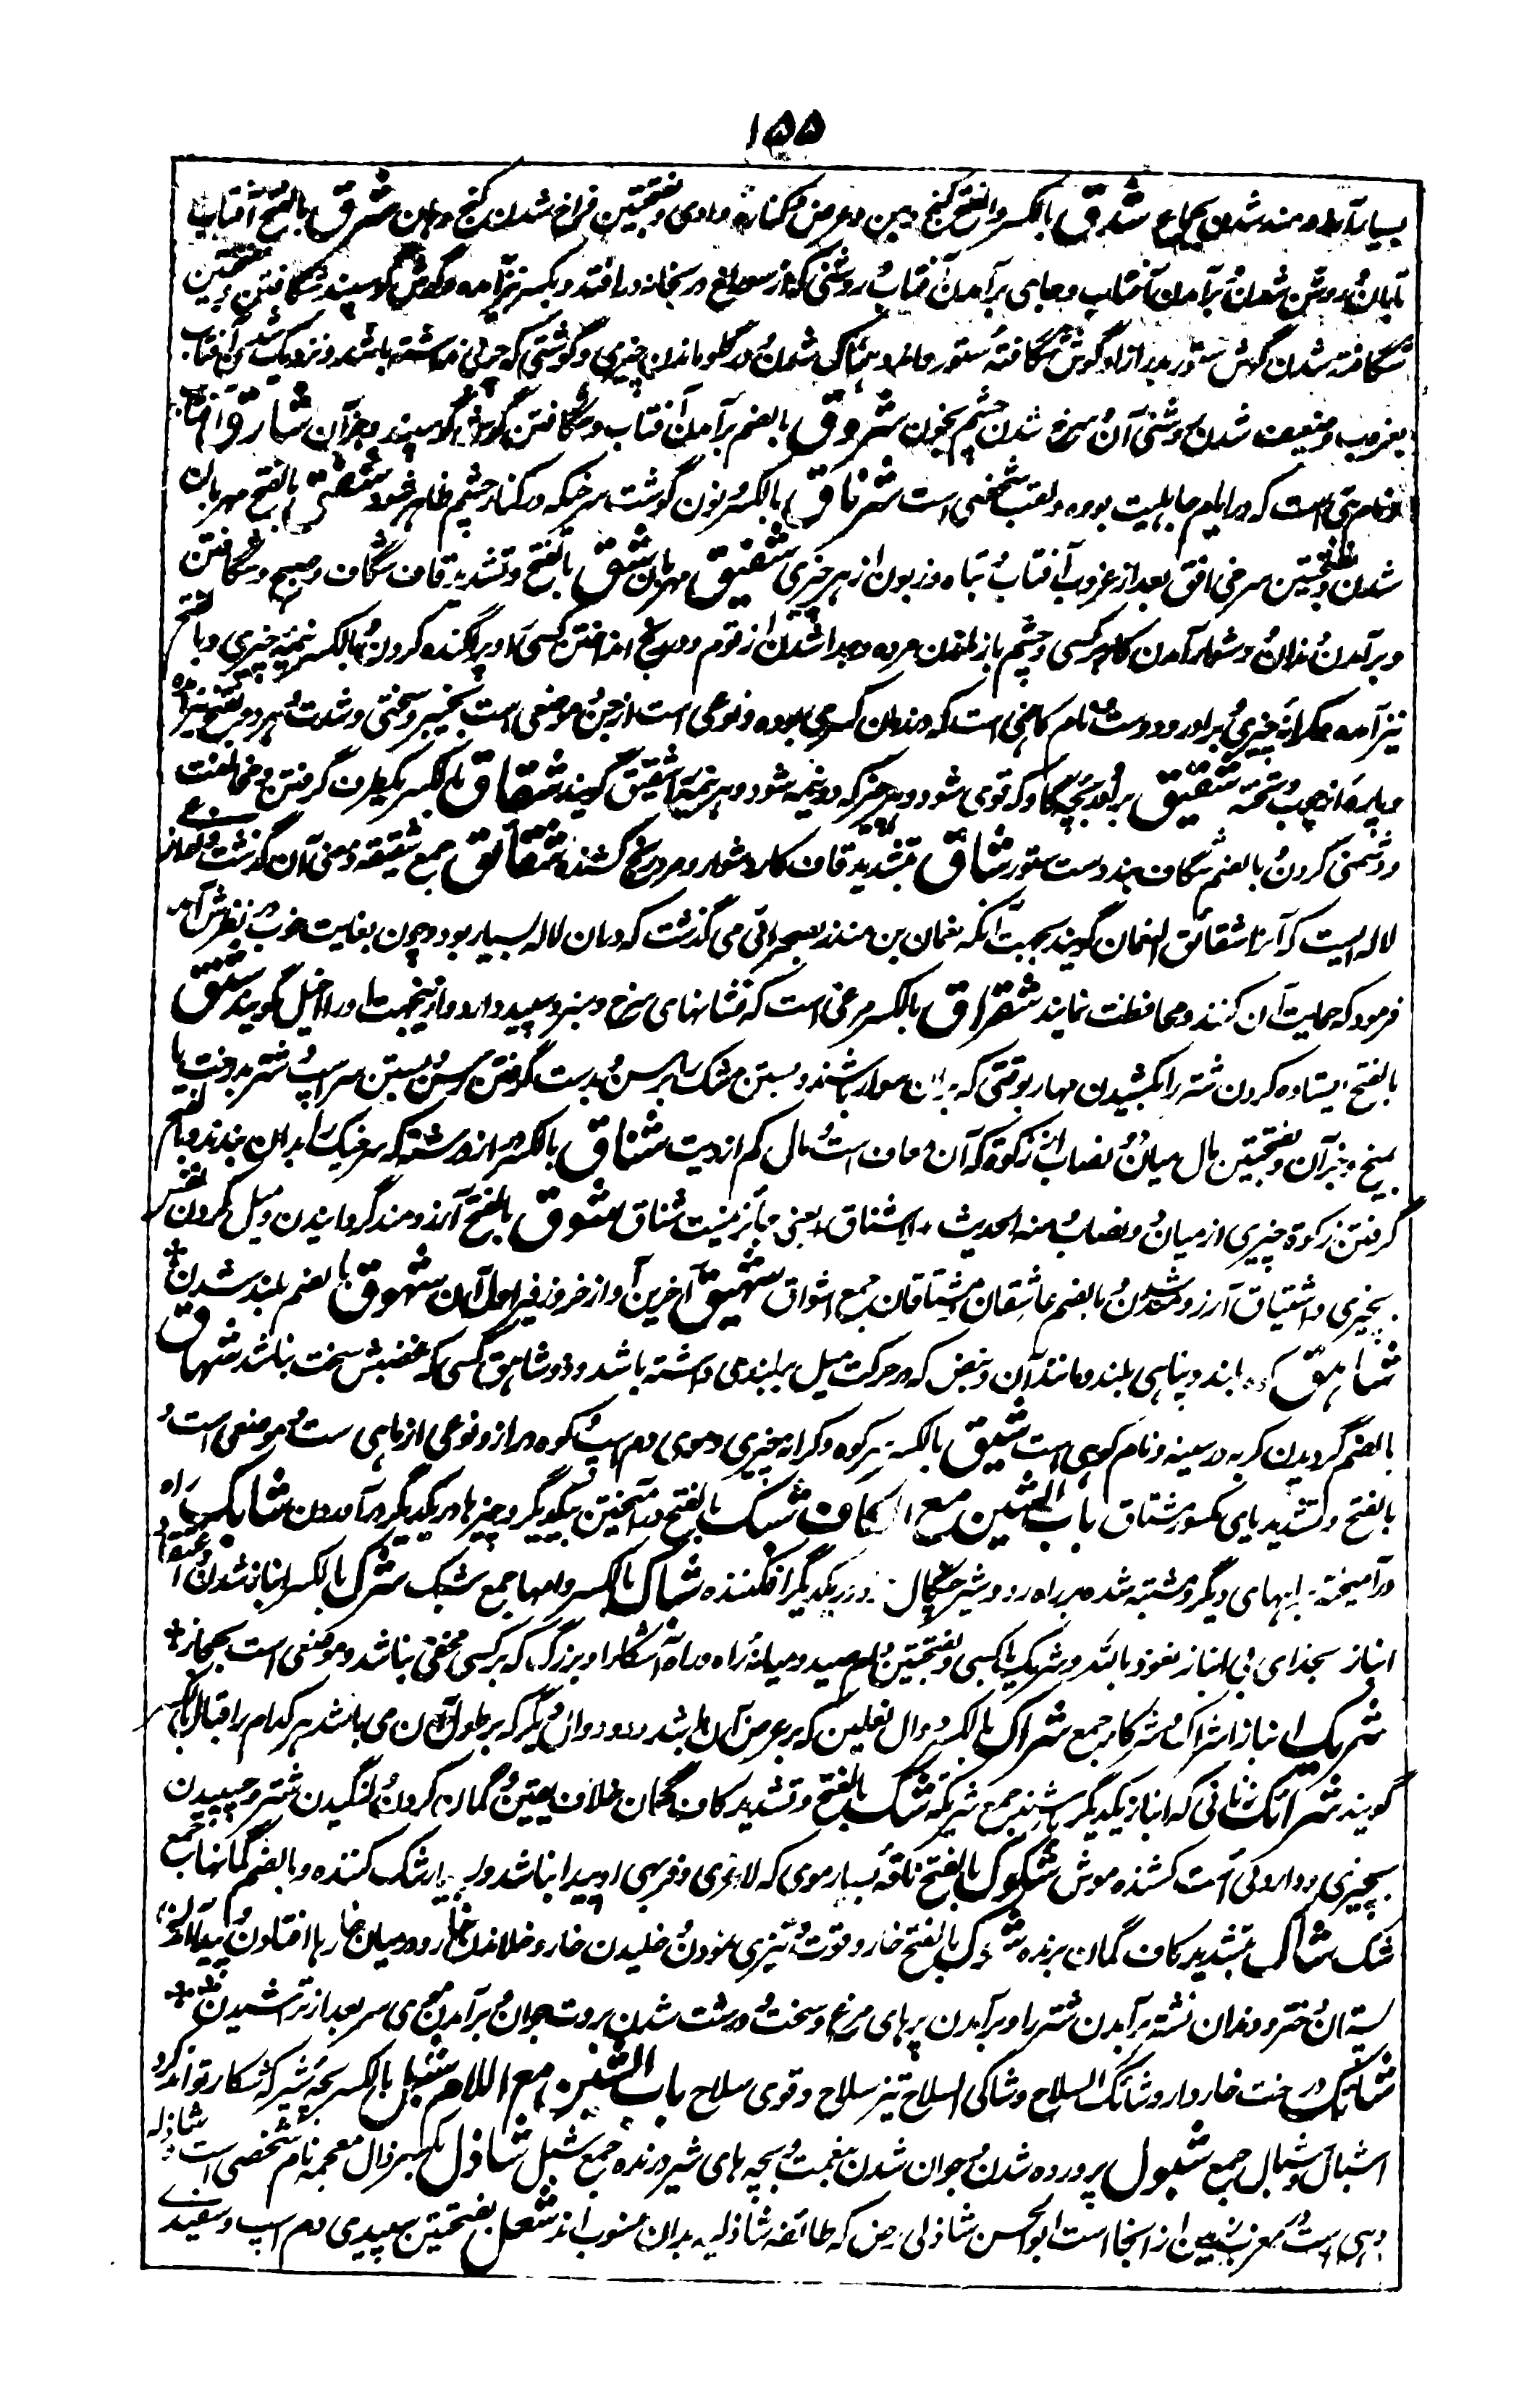 ۱۵۵
بسیار آرزومند شدن بجماع شدق بالکسر والفتح کنج دهن و عرض و کناره وادی و بفتحتین فراخ شدن کنج دهان شرق بالفتح آفتاب
تابان و روشن شدن و برآمدن آفتاب و جای برآمدن آفتاب و روشنی که از سوراخ در بخانه درافتد و بکسر نیز آمده و گوش گوسپند شگافتن و بفتحتین
شگافته شدن گوش ستور و گوش شگافته ستور و اندوهناک شدن و در گلو ماندن چیزی و گوشتی که چربی نداشته باشد و نزدیک شدن آفتاب
بغروب و ضعیف شدن روشنی آن و سرخ شدن چشم بخون شروق بالضم برآمدن آفتاب و شگافتن گوش گوسپند و جز آن شارق آفتاب
و نام بتی است که در ایام جاهلیت بوده و لقب شخصی است شرناق بالکسر و نون گوشت سرخ که در کنار چشم ظاهر شود شفق بالفتح مهربان
شدن و بفتحتین سرخی افق بعد از غروب آفتاب و تباه و زبون از هر چیزی شفیق مهربان شق بالفتح و تشدید قاف شگاف و صبح و شگافتن
و برآمدن دندان و دشوار آمدن کار بر کسی و چشم باز ماندن مرده و جدا شدن از قوم و در رنج انداختن کسی را و پراگنده کردن و بالکسر نیمه چیزی و بالفتح
نیز آمده و کرانه چیزی و برادر و دوست و نام کاهنی است که در زمان کسری بوده و نوعی است از جن و موضعی است بخیبر و سختی و شدت و بهر دو بفتح نیز آمده
و پاره از چوب و تخته شقیق برادر و بچه گاو که قوی شود و هر چیز که دو نیمه شود و هر نیمه را شقیق گویند شقاق بالکسر یکطرف گرفتن و مخالفت
و دشمنی کردن و بالضم شگاف بند دست ستور شاق بتشدید قاف کار دشوار و در رنج کشنده شقائق جمع شقیقه و معنی آن گذشت و نوعی از
لاله ایست که آنرا شقائق النعمان گویند بجهت آنکه نعمان بن منذر بصحرائی می گذشت که در آن لاله بسیار بود و چون بغایت خوب در نظرش آمد
فرمود که حمایت آن کنند و محافظت نمایند شقراق بالکسر مرغی است که نشانهای سرخ و سبز و سپید دارد و ازینجهت او را اخیل گویند شنق
بالفتح ایستاده کردن شتر را بکشیدن مهار بوقتی که بران سوار باشند و بستن مشک را برسن و بدست گرفتن رسن و بستن سر اسپ و شتر بدرخت یا
بمیخ و جز آن و بفتحتین مال میان دو نصاب از زکوة که آن معاف است و مال کم از دیت شناق بالکسر دراز و رشته که سر خیک را بدان بندند و بالفتح
گرفتن زکوة چیزی از میان دو نصاب و منه الحدیث لا شناق یعنی جائز نیست شناق شوق بالفتح آرزومند گردانیدن و میل کردن نفس
بچیزی و اشتیاق آرزومند شدن و بالضم عاشقان و مشتاقان جمع اشواق شهیق آخرین آواز خر و زفیر اول آن شهوق بالضم بلند شدن
شاهق کوه بلند و بنای بلند و مانند آن و نبض که در حرکت میل ببلندی داشته باشد و ذو شاهق کسی که غضبش سخت باشد شهاق
بالضم گردیدن گریه در سینه و نام کوهی است شیق بالکسر سر کوه و کرانه چیزی و موی دم اسپ و کوه دراز و نوعی از ماهی است و موضعی است و
بالفتح و تشدید یای مکسور مشتاق باب الشین مع الکاف شبک بالفتح درآمیختن بیکدیگر و چیزها در یکدیگر درآوردن شابک راه
درآمیخته براههای دیگر و مشتبه شده بر راه رو و شیر چنگال در یکدیگر افکننده شباک بالکسر دامها جمع شبک شرک بالکسر انباز شدن و اعتقاد
انباز بخدای بی انباز نعوذ بالله و شریک با کسی و بفتحتین دام صید و میانه راه و راه آشکارا و بزرگ که بر کسی مخفی نباشد و موضعی است بحجاز
شریک انباز اشراک و شرکا جمع شراک بالکسر دوال نعلین که بر عرض آن باشد و دو دوال دیگر که بر طول آن می باشد هر کدام را قبال بالکسر
گویند شرائک زنانی که انباز یکدیگر باشند جمع شریکه شک بالفتح و تشدید کاف گمان خلاف یقین و گمان کردن و لنگیدن شتر و چسپیدن
بچیزی و داروئی است کشنده موش شکوک بالفتح ناقه بسیار موی که لاغری و فربهی او پیدا نباشد و بسیار شک کننده و بالضم گمانها جمع
شک شاک بتشدید کاف گمان برنده شوک بالفتح خار و قوت و تیزی نمودن و خلیدن خار و خلانیدن خار و در میان خارها افتادن و پیدا آمدن
پستان دختر و دندان نشتر برآمدن شتر را و برآمدن پرهای مرغ و سخت و درشت شدن بروت جوان و برآمدن موی سر بعد از تراشیدن
شائک درخت خاردار و شائک السلاح و شاکی السلاح تیز سلاح و قوی سلاح باب الشین مع اللام شبل بالکسر بچه شیر که شکار تواند کرد
اشبال و شبال جمع شبول پرورده شدن و جوان شدن بنعمت و بچه های شیر درنده جمع شبل شاذل بکسر ذال معجمه نام شخصی است شاذله
دهی است در مغرب زمین از آنجا است ابوالحسن شاذلی رض که طائفه شاذلیه بدان منسوب اند شعل بفتحتین سپیدی دم اسپ و سفیدی